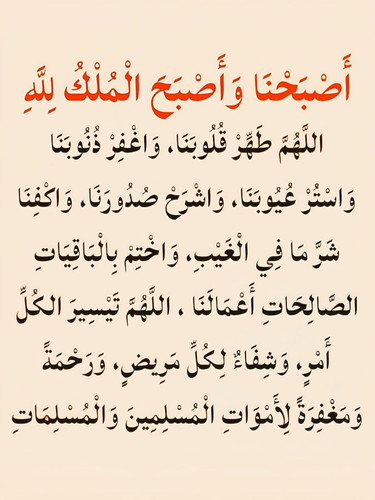 أَصْبَحْنَا وَأَصْبَحَ الْمُلْكُ لِلَّهِ
اللَّهُمَّ طَهِّرْ قُلُوبَنَا، وَاغْفِرْ ذُنُوبَنَا
وَاسْتُرْ عُيُوبَنَا، وَاشْرَحْ صُدُورَنَا، وَاكْفِنَا
شَرَّ مَا فِي الْغَيْبِ، وَاخْتِمْ بِالْبَاقِيَاتِ
الصَّالِحَاتِ أَعْمَالَنَا ، اللَّهُمَّ تَيْسِيرَ الكُلِّ
أَمْرٍ، وَشِفَاءً لِكُلِّ مَرِيضٍ، وَرَحْمَةً
وَمَغْفِرَةً لِأَمْوَاتِ الْمُسْلِمِينَ وَالْمُسْلِمَاتِ